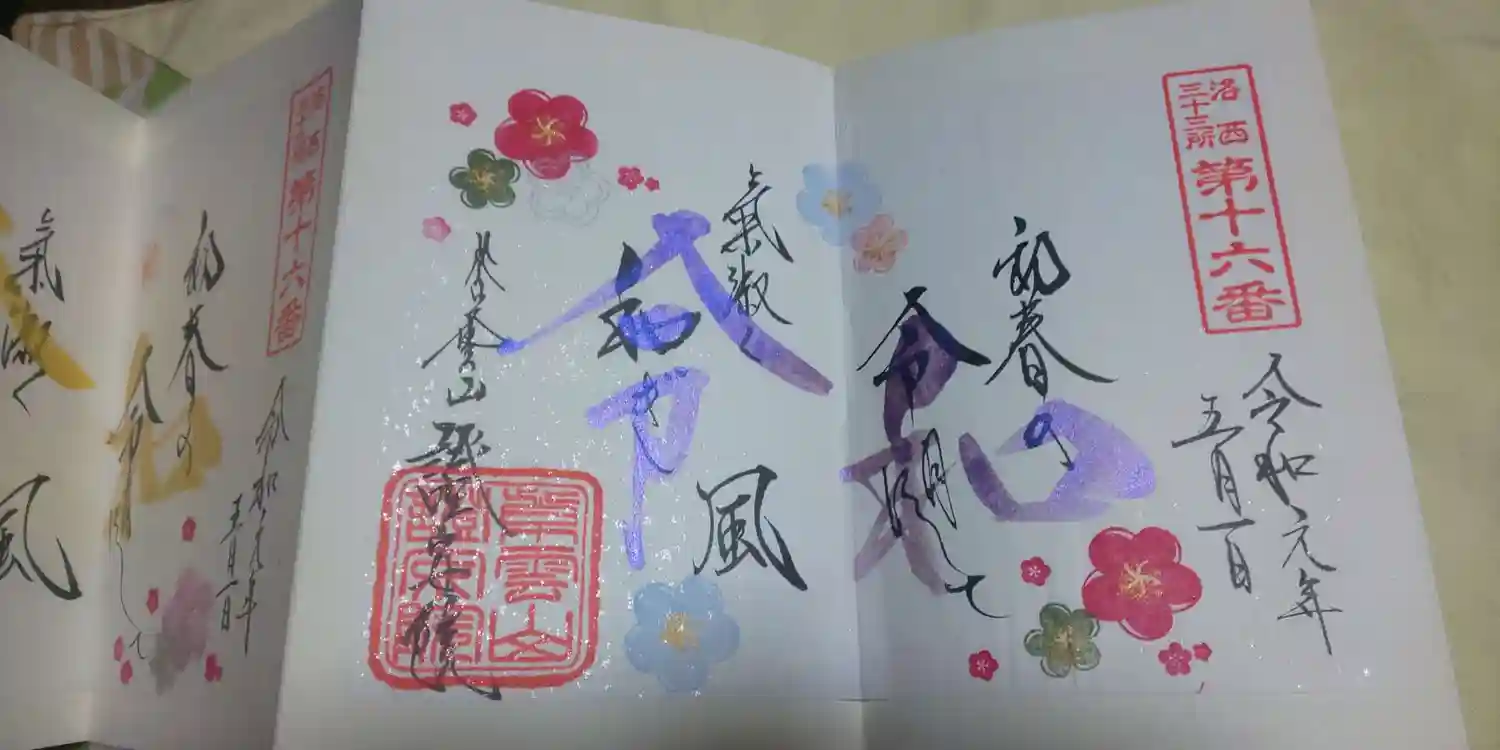 洛西
三十三所
第十六番
令和元年
五月一日
初春の
令月にして
氣淑く
風
和ぎ
令和
紫雲山
洛西
三十三所
第十六番
令和元年
五月一日
初春の
令月にして
和
氣淑く
風